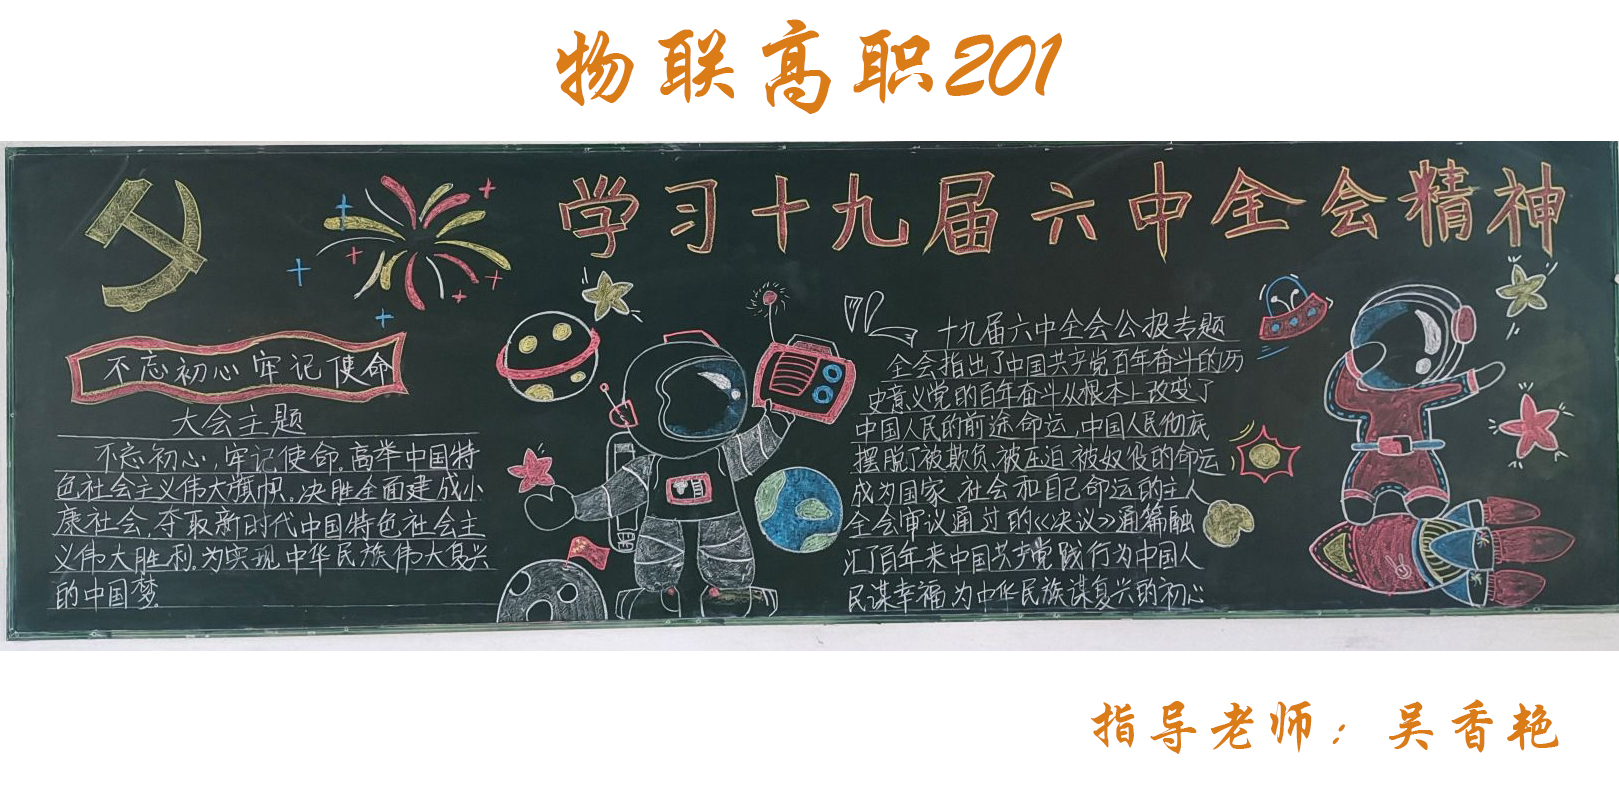 物联高职201
学习十九届六中全会精神
不忘初心牢记使命
大会主题
不忘初心,牢记使命。高举中国特
色社会主义伟大旗帜。决胜全面建成小
康社会,夺取新时代中国特色社会主
义伟大胜利。为实现中华民族伟大复兴
的中国梦
十九届六中全会公报专题
全会指出了中国共产党百年奋斗的历
史意义党的百年奋斗从根本上改变了
中国人民的前途命运,中国人民彻底
摆脱了被欺负、被压迫被奴役的命运
成为国家 社会和自己命运的主人
全会审议通过的《决议》通篇融
汇了百年来中国共产党践行为中国人
民谋幸福为中华民族谋复兴的初心
指导老师：吴香艳